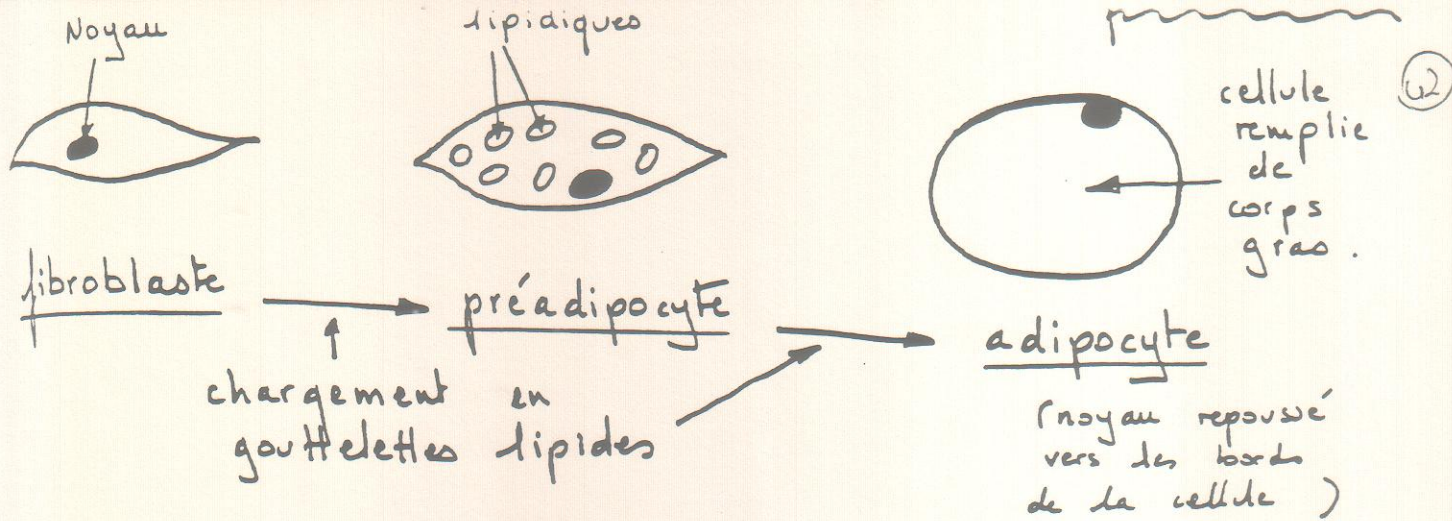 Noyau
lipidiques
42
cellule
remplie
de
corps
gras.
fibroblaste
préadipocyte
adipocyte
chargement en
gouttelettes lipides
(noyau repoussé
vers les bords
de la cellule)